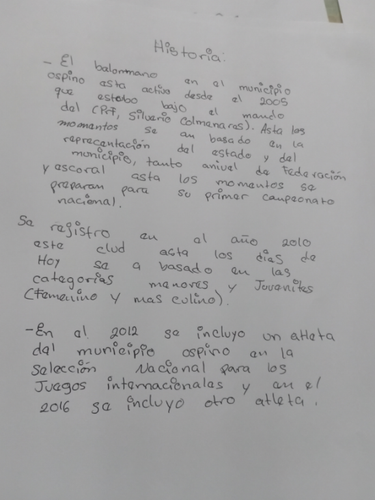 Historia:
- El balonmano en el municipio
ospino asta activa desde el 2005
que estabo bajo el mando
del (Prf, Silverio Colmenares). Asta los
momentos se an basado en la
representación del estado y del
municipio, tanto anivel de Federación
y escoral asta los momentos se
preparan para su primer campeonato
nacional.
Se registro en el año 2010
este clud asta los dias de
Hoy se a basado en las
categorias menores y Juveniles
(Femenino y mas culino).
- En el 2012 se incluyo un atleta
del municipio ospino en la
Selección Nacional para los
Juegos internacionales y en el
2016 se incluyo otro atleta.